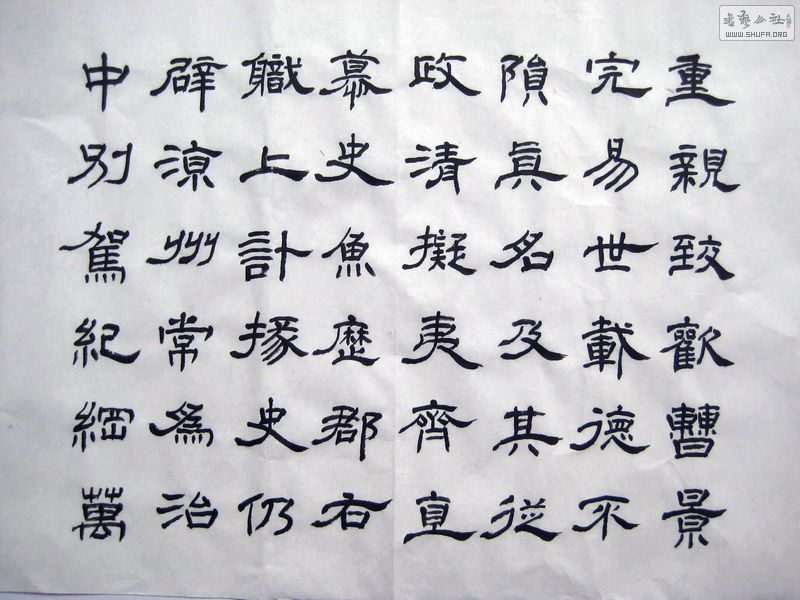 重親致歡曹景
完易世載德不
隕眞名及其從
政清擬夷齊直
慕史魚歷郡右
職上計掾史仍
辟涼州常爲治
中別駕紀綱萬
書藝公社
WWW.SHUFA.ORG